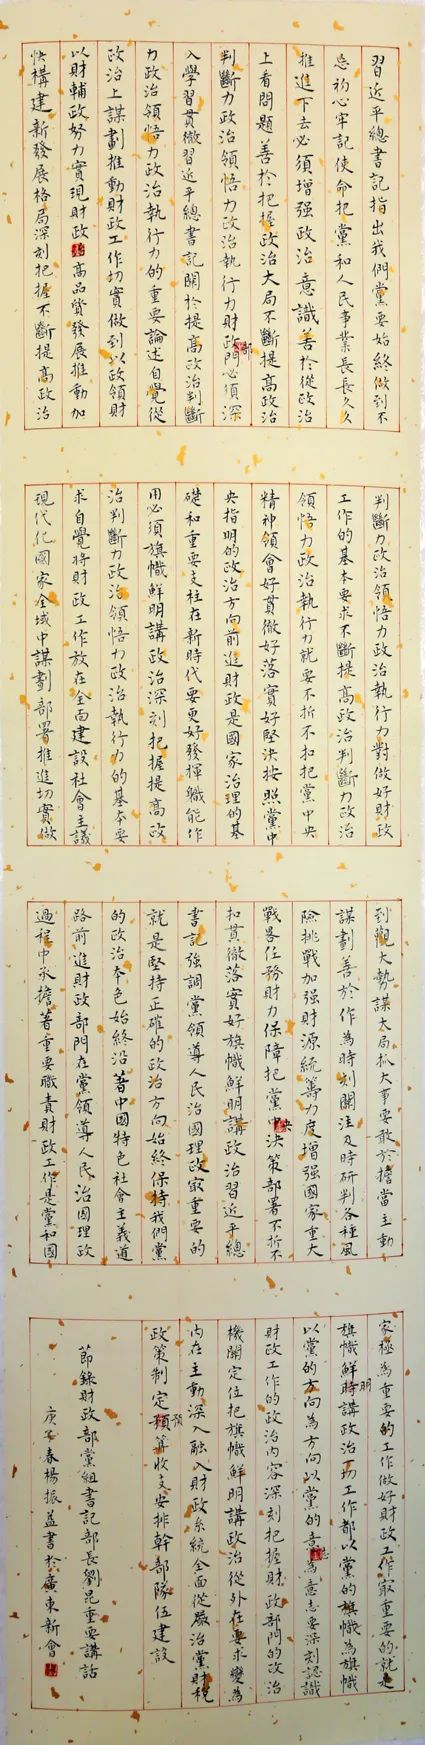 習近平總書記指出我們黨要始終做到不
忘初心牢記使命把黨和人民事業長長久久
推進下去必須增强政治意識善於從政治
上看問題善於把握政治大局不斷提高政治
判斷力政治領悟力政治執行力財政部門必須深
入學習貫徹習近平總書記關於提高政治判斷
力政治領悟力政治執行力的重要論述自覺從
政治上謀劃推動財政工作切實做到以政領財
以財輔政努力實現財政高品質發展推動加
快構建新發展格局深刻把握不斷提高政治
判斷力政治領悟力政治執行力對做好財政
工作的基本要求不斷提高政治判斷力政治
領悟力政治執行力就要不折不扣把黨中央
精神領會好貫徹好落實好堅決按照黨中
央指明的政治方向前進財政是國家治理的基
礎和重要支柱在新時代要更好發揮職能作
用必須旗幟鮮明講政治深刻把握提高政
治判斷力政治領悟力政治執行力的基本要
求自覺將財政工作放在全面建設社會主義
現代化國家全域中謀劃部署推進切實做
到觀大勢謀大局抓大事要敢於擔當主動
謀劃善於作為時刻關注及時研判各種風
險挑戰加强財源統籌力度增强國家重大
戰畧任務財力保障把黨中央決策部署不折不
扣貫徹落實好旗幟鮮明講政治習近平總
書記强調黨領導人民治國理政最重要的
就是堅持正確的政治方向始終保持我們黨
的政治本色始終沿着中國特色社會主義道
路前進財政部門在黨領導人民治國理政
過程中承擔著重要職責財政工作是黨和國
家極為重要的工作做好財政工作最重要的就是
旗幟鮮明講政治一切工作都以黨的旗幟為旗幟
以黨的方向為方向以黨的意志為意志要深刻認識
財政工作的政治內容深刻把握財政部門的政治
機關定位把旗幟鮮明講政治從外在要求變為
內在主動深入融入財政系統全面從嚴治黨財稅
政策制定預算收支安排幹部隊伍建設
節錄財政部黨組書記部長劉昆重要講話
庚子春楊振益書於廣東新會